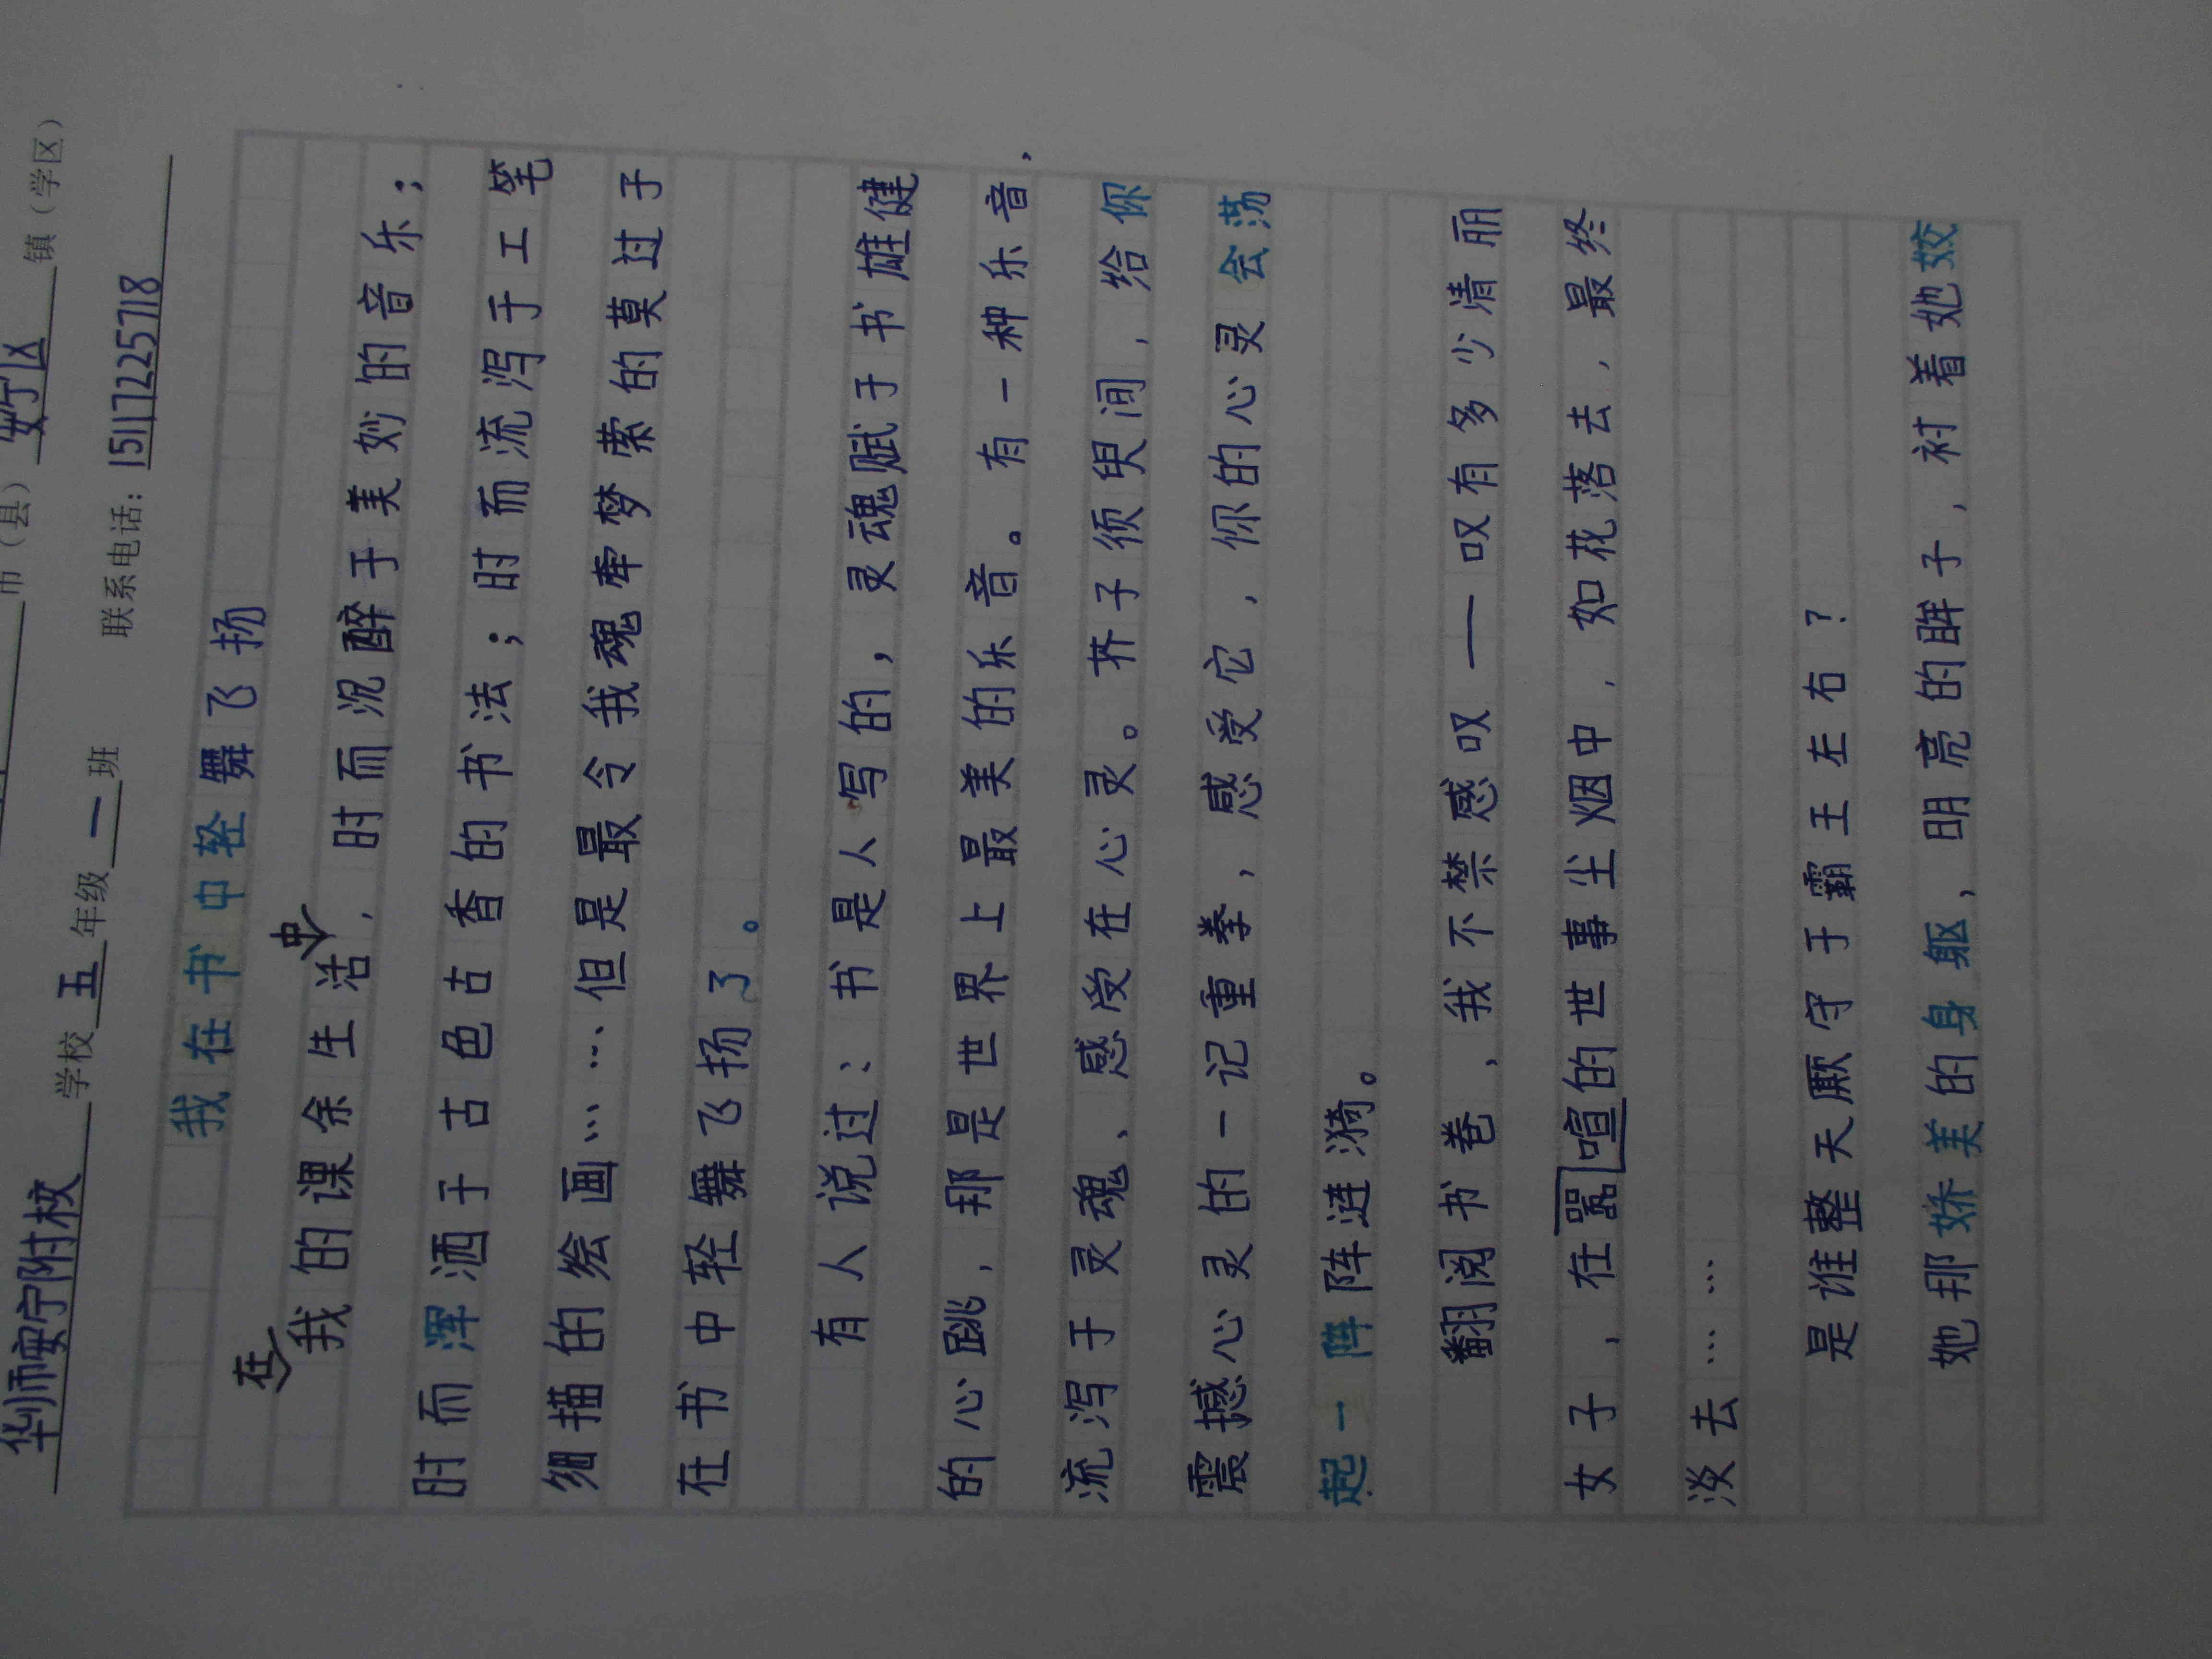 市（县）安宁区镇（学区）
华师安宁附校学校五年级一班 联系电话：15117225718
我在书中轻舞飞扬
在我的课余生活中，时而沉醉于美妙的音乐；
时而浑洒于古色古香的书法；时而流泻于工笔
细描的绘画……但是最令我魂牵梦萦的莫过于
在书中轻舞飞扬了。
有人说过：书是人写的，灵魂赋于书雄健
的心跳，那是世界上最美的乐音。有一种乐音，
流泻于灵魂、感受在心灵。芥子须臾间，给你
震撼心灵的一记重拳，感受它，你的心灵会荡
起一阵阵涟漪。
翻阅书卷，我不禁感叹——叹有多少清丽
女子，在嚣喧的世事尘烟中，如花落去，最终
淡去……
是谁整天厮守于霸王左右？
她那娇美的身躯，明亮的眸子，衬着她姣